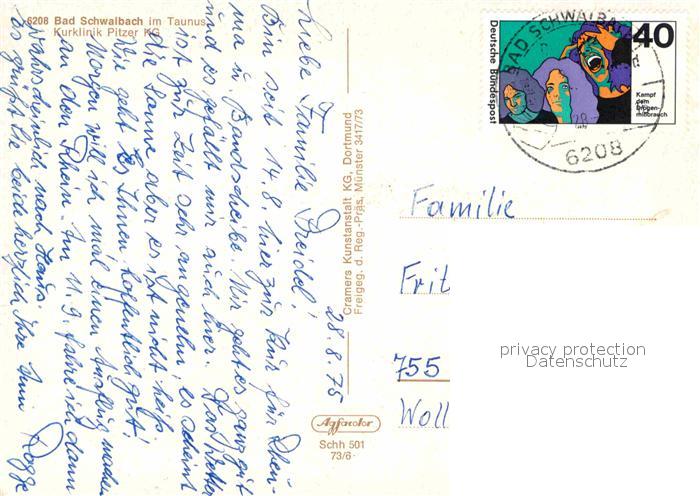 6208 Bad Schwalbach im Taunus
Kurklinik Pitzer KG
28.8.75
Liebe Familie Dreidel!
Bin seit 14.8. hier zur Kur für Rheu-
ma u. Bandscheibe. Mir geht es ganz gut
und es gefällt mir auch hier. Das Wetter
ist zur Zeit sehr angenehm, es scheint
die Sonne aber es ist nicht heiß.
Wie geht es Ihnen hoffentlich gut!
Morgen will ich mal einen Ausflug machen
an den Rhein. Am 11.9. fahre ich dann
wahrscheinlich nach Haus.
Es grüßt Sie beide herzlich Ihre Anni Rogge
Cramers Kunstanstalt KG, Dortmund
Freigeg. d. Reg.-Präs. Münster 3417/73
Agfacolor
Schh 501
73/6
Deutsche Bundespost
40
Kampf
dem
Drogen-
mißbrauch
BAD SCHWALBA
28
6208
Familie
Frit
755
Woll
privacy protection
Datenschutz